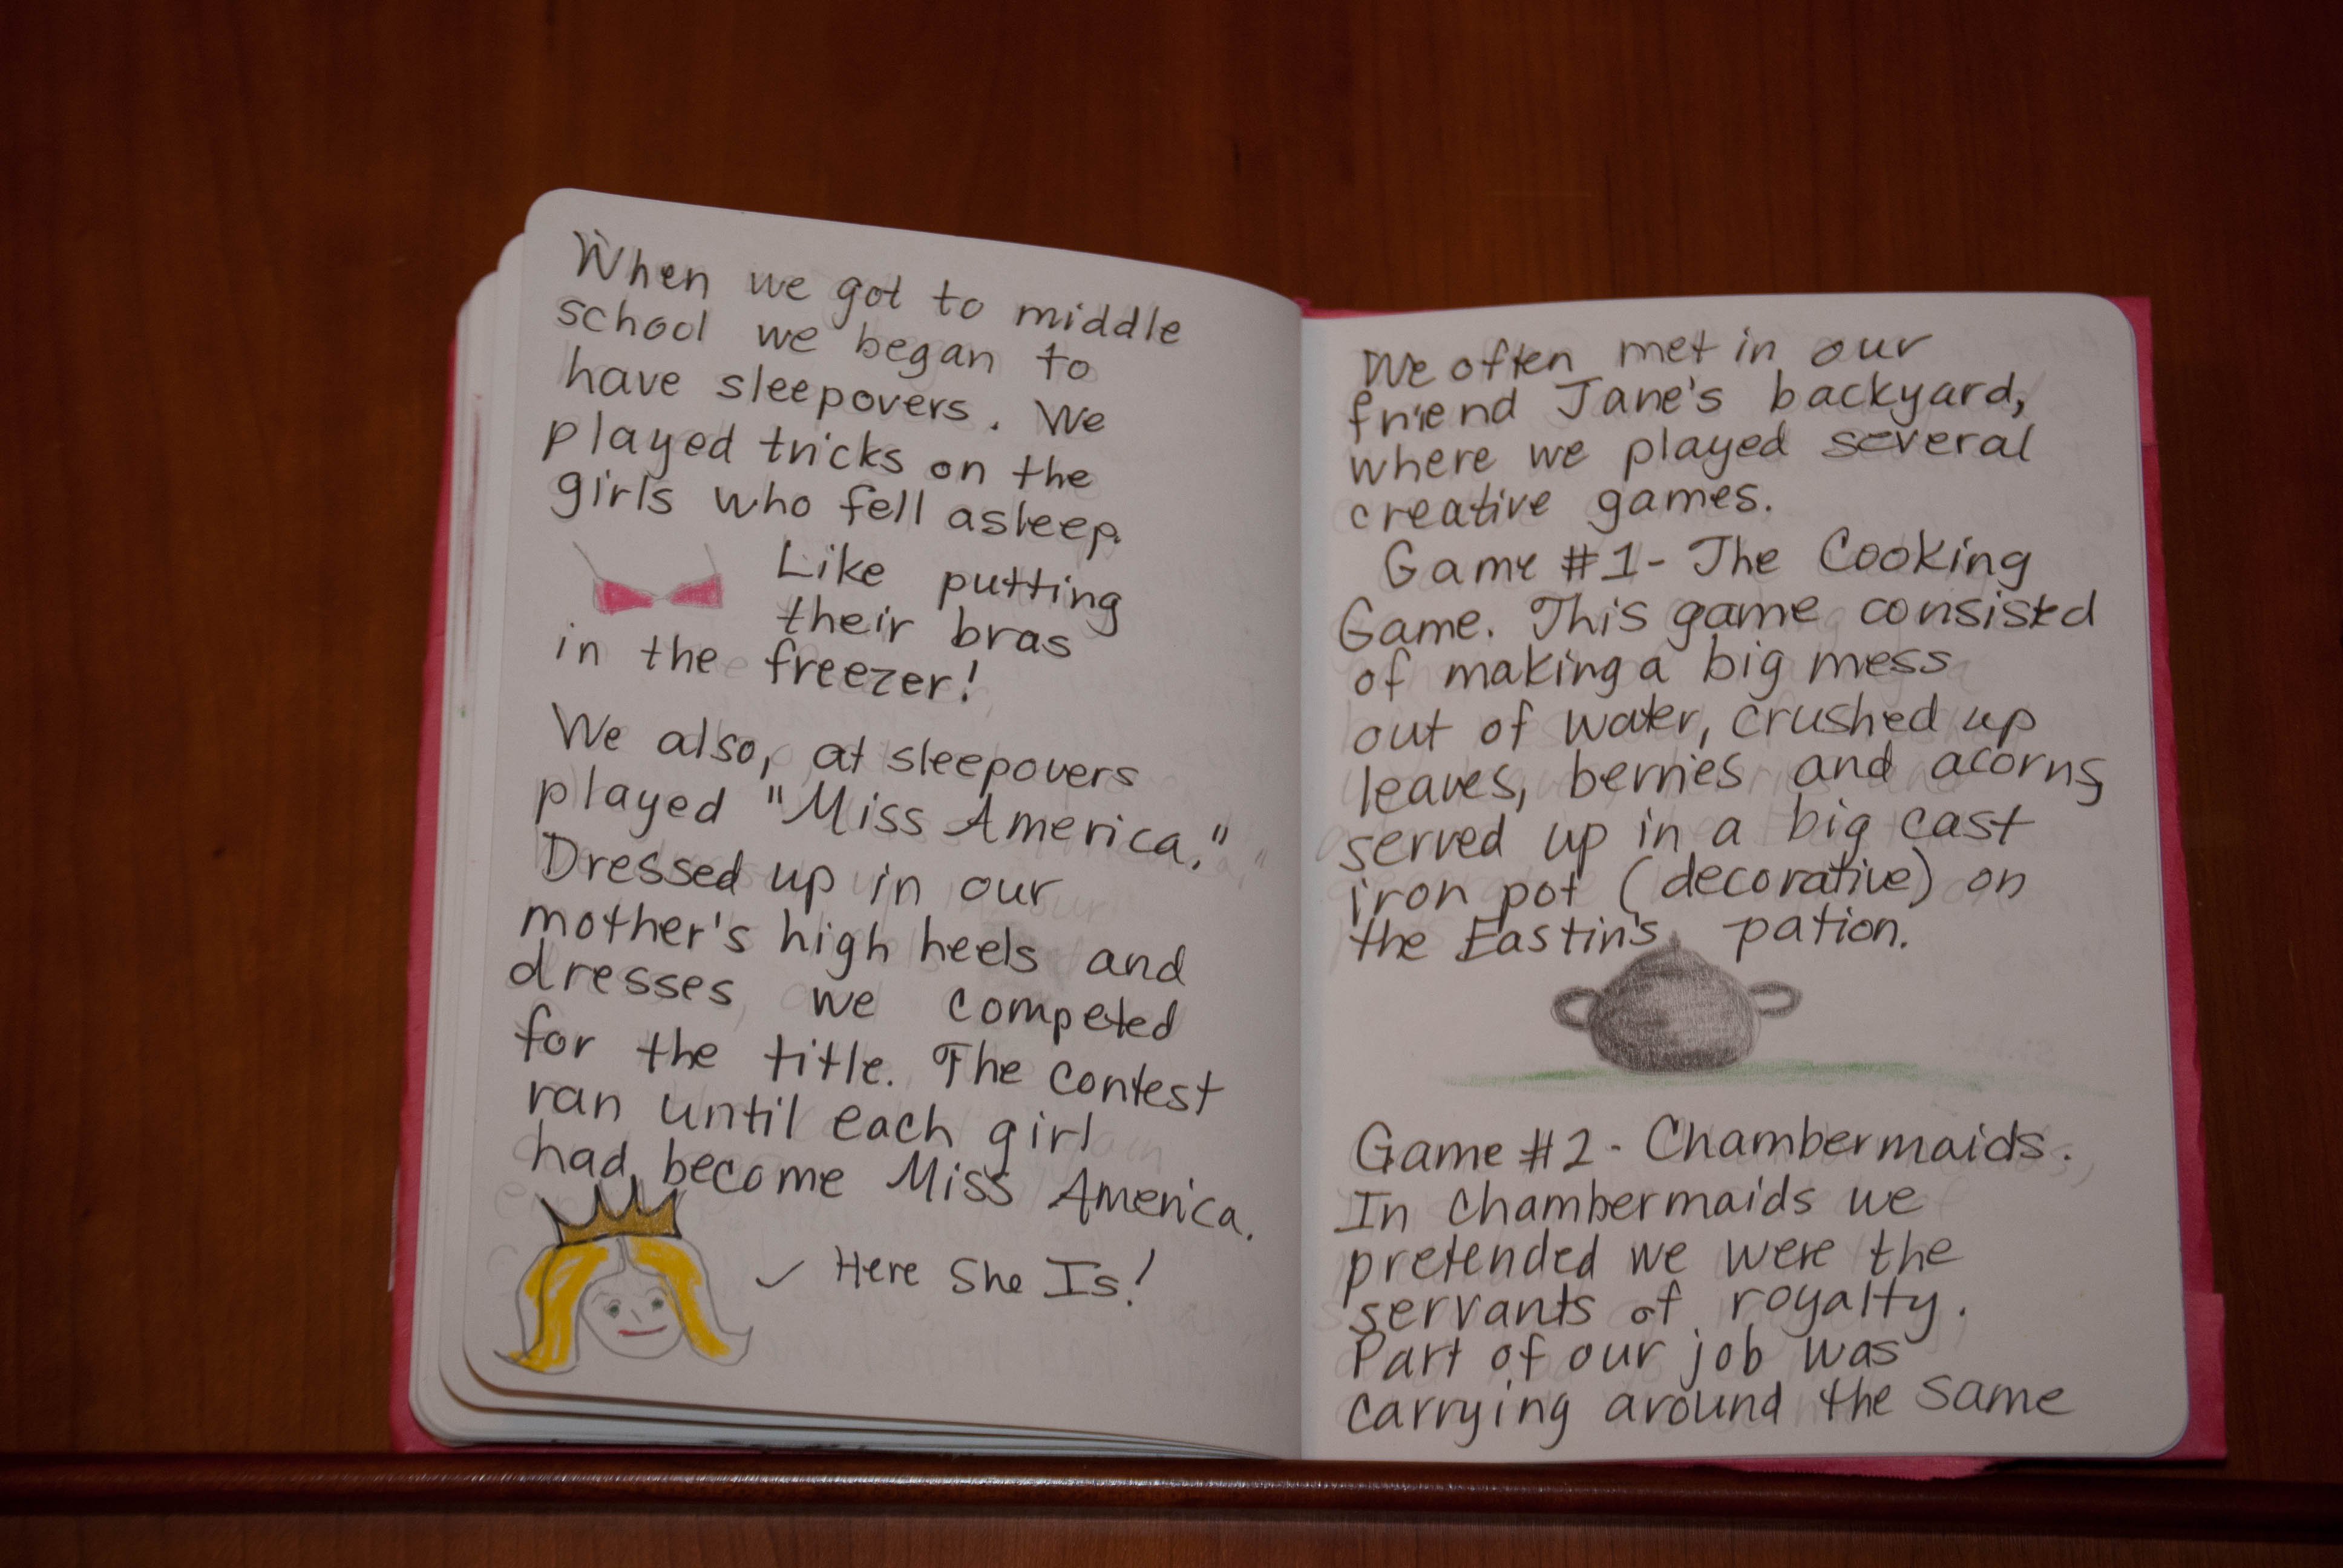 When we got to middle
school we began to
have sleepovers. We
played tricks on the
girls who fell asleep.
Like putting
their bras
in the freezer!
We also, at sleepovers
played "Miss America."
Dressed up in our
mother's high heels and
dresses we competed
for the title. The contest
ran until each girl
had become Miss America.
Here She Is!
We often met in our
friend Jane's backyard,
where we played several
creative games.
Game #1- The Cooking
Game. This game consisted
of making a big mess
out of water, crushed up
leaves, berries and acorns,
served up in a big cast
iron pot (decorative) on
the Eastin's pation.
Game #2 - Chambermaids.
In Chambermaids we
pretended we were the
servants of royalty.
Part of our job was
carrying around the same